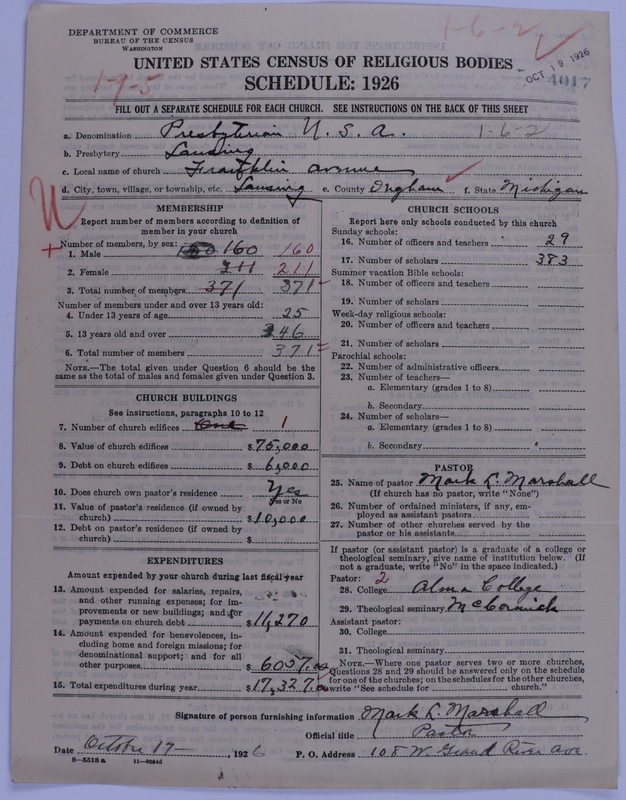 DEPARTMENT OF COMMERCE
BUREAU OF THE CENSUS
WASHINGTON
1-6-2
OCT 19 1926
4017
1-9-5
UNITED STATES CENSUS OF RELIGIOUS BODIES
SCHEDULE: 1926
FILL OUT A SEPARATE SCHEDULE FOR EACH CHURCH. SEE INSTRUCTIONS ON THE BACK OF THIS SHEET
a. Denomination Presbyterian U. S. A. 1-6-2
b. Presbytery Lansing
c. Local name of church Franklin avenue
d. City, town, village, or township, etc. Lansing e. County Ingham f. State Michigan
MEMBERSHIP
Report number of members according to definition of
member in your church
Number of members, by sex:
1. Male 160 160
2. Female 211 211
3. Total number of members 371 371
Number of members under and over 13 years old:
4. Under 13 years of age 25
5. 13 years old and over 346
6. Total number of members 371
NOTE.—The total given under Question 6 should be
the same as the total of males and females given under Question 3.
CHURCH BUILDINGS
See instructions, paragraphs 10 to 12
7. Number of church edifices One 1
8. Value of church edifices $75,000
9. Debt on church edifices $6,000
10. Does church own pastor's residence Yes
Yes or No
11. Value of pastor's residence (if owned by
church) $10,000
12. Debt on pastor's residence (if owned by
church) $
EXPENDITURES
Amount expended by your church during last fiscal year
13. Amount expended for salaries, repairs,
and other running expenses; for im-
provements or new buildings; and for
payments on church debt $11,270
14. Amount expended for benevolences, in-
cluding home and foreign missions; for
denominational support; and for all
other purposes $6057.00
15. Total expenditures during year $17,327.00
CHURCH SCHOOLS
Report here only schools conducted by this church
Sunday schools:
16. Number of officers and teachers 29
17. Number of scholars 383
Summer vacation Bible schools:
18. Number of officers and teachers
19. Number of scholars
Week-day religious schools:
20. Number of officers and teachers
21. Number of scholars
Parochial schools:
22. Number of administrative officers
23. Number of teachers—
a. Elementary (grades 1 to 8)
b. Secondary
24. Number of scholars—
a. Elementary (grades 1 to 8)
b. Secondary
PASTOR
25. Name of pastor Mark L. Marshall
(If church has no pastor, write "None")
26. Number of ordained ministers, if any, em-
ployed as assistant pastors
27. Number of other churches served by the
pastor or his assistants
If pastor (or assistant pastor) is a graduate of a college or
theological seminary, give name of institution below. (If
not a graduate, write "No" in the space indicated.)
Pastor: 2
28. College Alma College
29. Theological seminary McCormick
Assistant pastor:
30. College
31. Theological seminary
NOTE.—Where one pastor serves two or more churches,
Questions 28 and 29 should be answered only on the schedule
for one of the churches; on the schedules for the other churches,
write "See schedule for church."
Signature of person furnishing information Mark L. Marshall
Official title Pastor
Date October 17 1926 P. O. Address 108 W. Grand River ave
8—5518 a 11—9054d